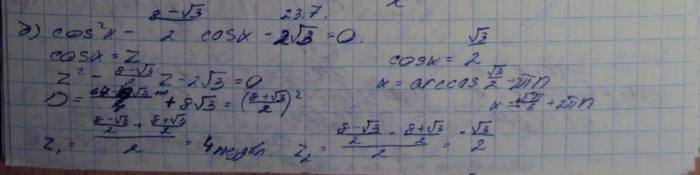 23.7.
б) cos²x - (8-√3)/2 cosx - 2√3 = 0.
cosx = z
z² - (8-√3)/2 z - 2√3 = 0
+ 8√3 = ((8+√3)/2)²
z₁ = ((8-√3)/2 + (8+√3)/2)/2 = 4 z₂ = ((8-√3)/2 - (8+√3)/2)/2 = -√3/2
cosx = √3/2
x = arccos √3/2 + 2πn
+ 2πn